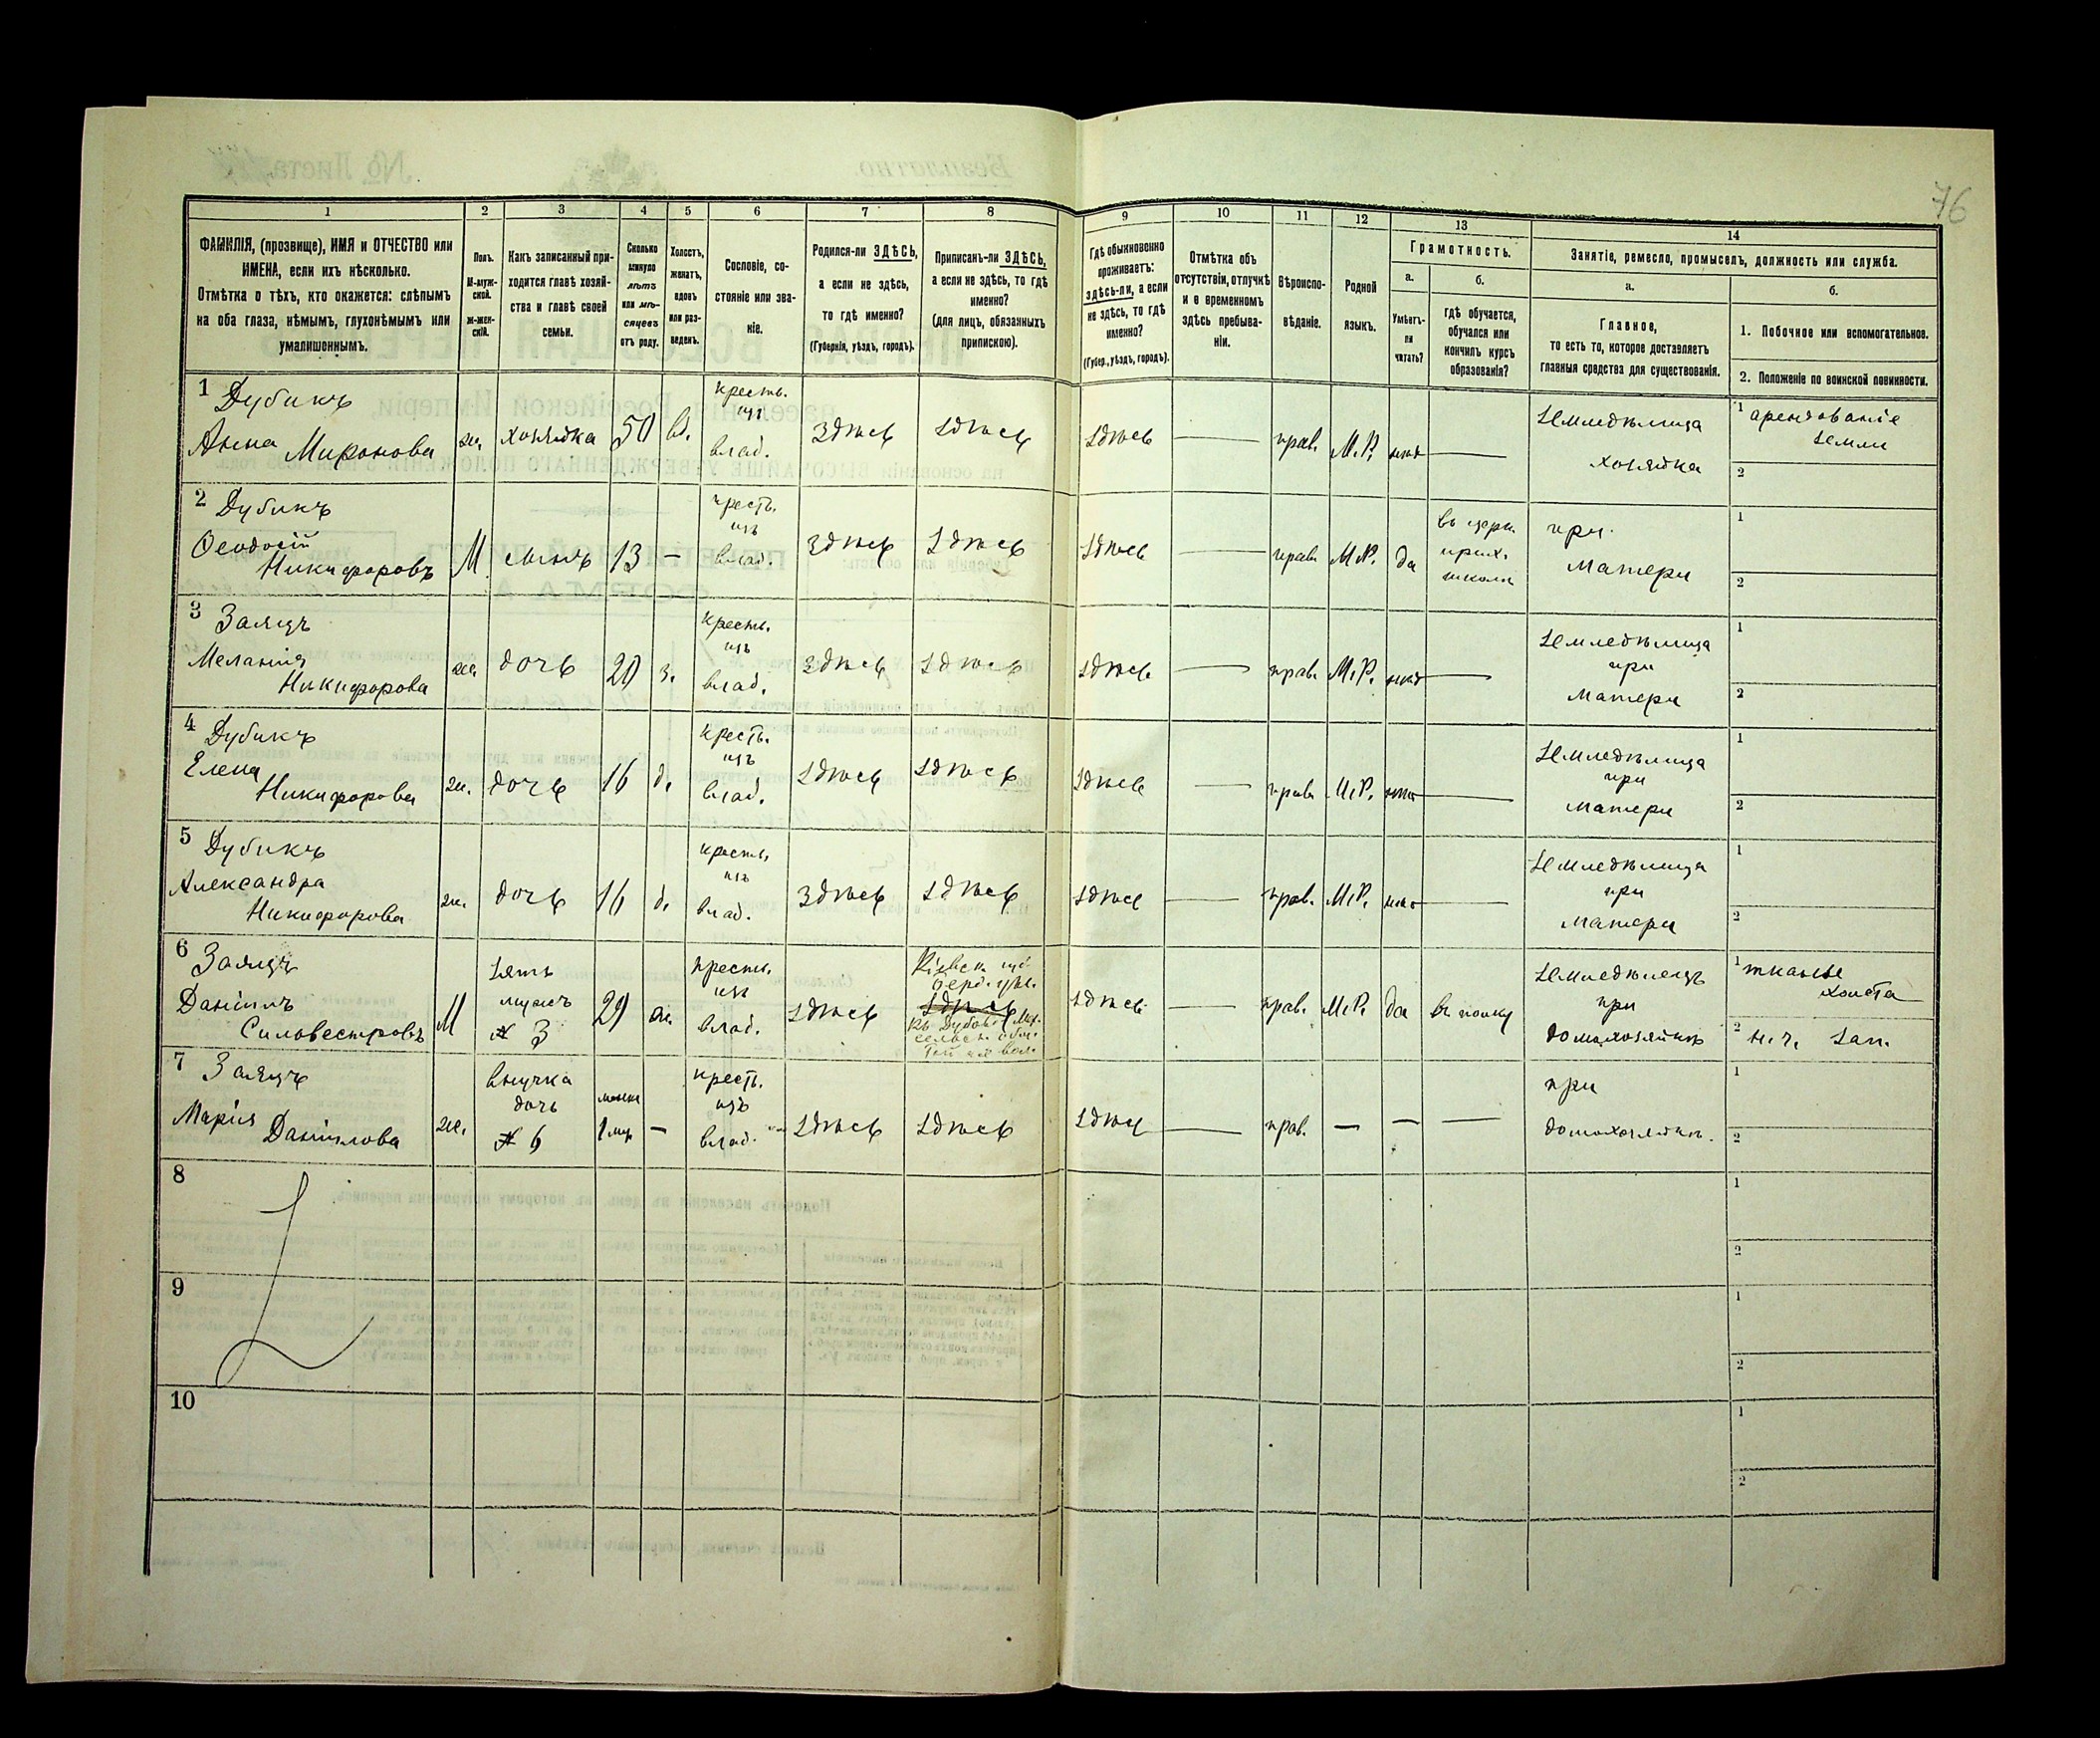 76
1 2 3 4 5 6 7 8 9 10 11 12 13 14
ФАМИЛІЯ, (прозвище), ИМЯ и ОТЧЕСТВО или
ИМЕНА, если ихъ нѣсколько.
Отмѣтка о тѣхъ, кто окажется: слѣпымъ
на оба глаза, нѣмымъ, глухонѣмымъ или
умалишеннымъ.
Полъ.
М-муж-
ской.
Ж-жен-
скій.
Какъ записанный при-
ходится главѣ хозяй-
ства и главѣ своей
семьи.
Сколько
минуло
лѣтъ
или мѣ-
сяцевъ
отъ роду.
Холостъ,
женатъ,
вдовъ
или раз-
веденъ.
Сословіе, со-
стояніе или зва-
ніе.
Родился-ли ЗДѢСЬ,
а если не здѣсь,
то гдѣ именно?
(Губернія, уѣздъ, городъ).
Приписанъ-ли ЗДѢСЬ,
а если не здѣсь, то гдѣ
именно?
(для лицъ, обязанныхъ
припискою).
Гдѣ обыкновенно
проживаетъ:
здѣсь-ли, а если
не здѣсь, то гдѣ
именно?
(Губер., уѣздъ, городъ).
Отмѣтка объ
отсутствіи, отлучкѣ
и о временномъ
здѣсь пребыва-
ніи.
Вѣроиспо-
вѣданіе.
Родной
языкъ.
Грамотность.
а.
Умѣетъ-
ли
читать?
б.
гдѣ обучается,
обучался или
кончилъ курсъ
образованія?
Занятіе, ремесло, промыселъ, должность или служба.
а.
Главное,
то есть то, которое доставляетъ
главныя средства для существованія.
б.
1. Побочное или вспомогательное.
2. Положеніе по воинской повинности.
1 Дубикъ
Анна Миронова
ж. хозяйка 50 вд.
кресть.
изъ
влад.
здѣсь здѣсь здѣсь — прав. М.Р. нѣт —
земледѣлица
хозяйка
1 арендованіе
земли
2
2 Дубикъ
Ѳеодосій
Никифоровъ
М сынъ 13 —
кресть.
изъ
влад.
здѣсь здѣсь здѣсь — прав. М.Р. да
въ церк.
прих.
школѣ
при
матери
1
2
3 Заяцъ
Меланія
Никифорова
ж. дочь 20 з.
кресть.
изъ
влад.
здѣсь здѣсь здѣсь — прав. М.Р. нѣт —
земледѣлица
при
матери
1
2
4 Дубикъ
Елена
Никифорова
ж. дочь 16 д.
кресть.
изъ
влад.
здѣсь здѣсь здѣсь — прав. М.Р. нѣт —
земледѣлица
при
матери
1
2
5 Дубикъ
Александра
Никифорова
ж. дочь 16 д.
кресть.
изъ
влад.
здѣсь здѣсь здѣсь — прав. М.Р. нѣт —
земледѣлица
при
матери
1
2
6 Заяцъ
Даніилъ
Силовестровъ
М
зять
мужъ
№ 3
29 ж.
кресть.
изъ
влад.
здѣсь
Кіевск. губ.
Берд. уѣз.
здѣсь
сельск. общ.
вол.
здѣсь — прав. М.Р. да въ полку
земледѣлецъ
при
домохозяйкѣ
1 тканье
холста
2 н.ч. зап.
7 Заяцъ
Марія Даніилова
ж.
внучка
дочь
№ 6
менѣе
1 мѣс —
кресть.
изъ
влад.
здѣсь здѣсь здѣсь — прав. — — —
при
домохозяйкѣ.
1
2
8
1
2
9
1
2
10
1
2